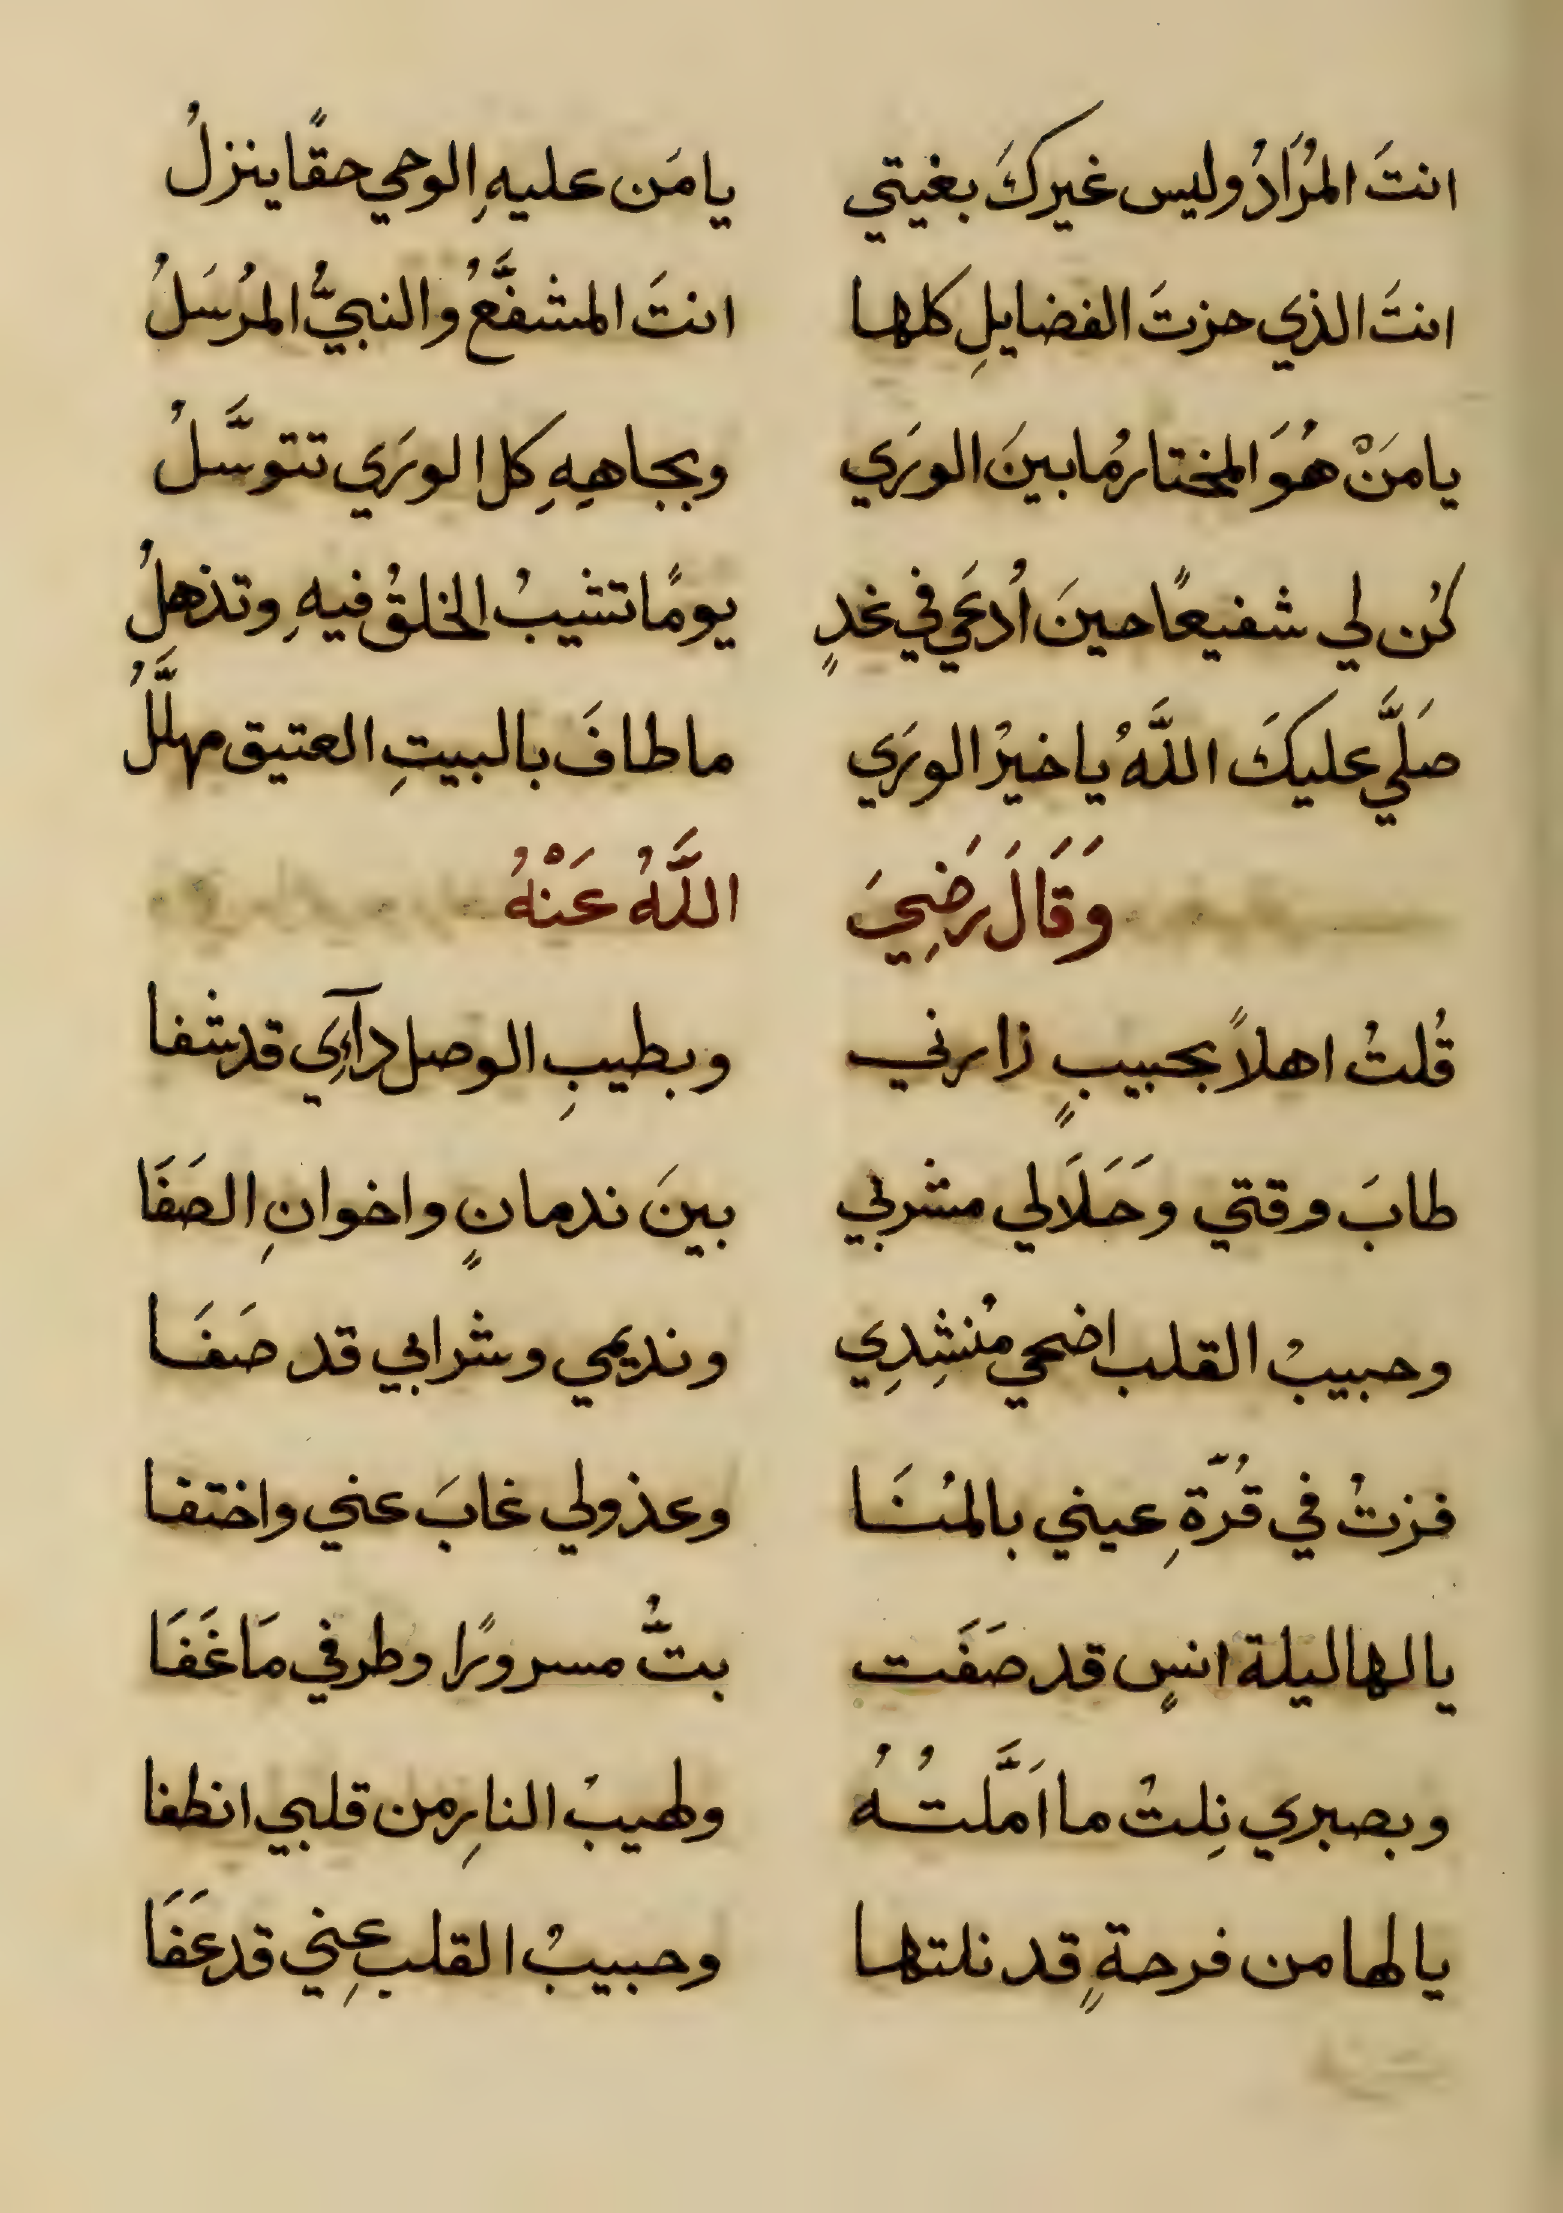 انتَ المُرَادُ وليس غيركَ بغيتي يا مَن عليهِ الوحي حقًا ينزلُ
انتَ الذي حزتَ الفضايلِ كلها انتَ المشفَّعُ والنبيُّ المرُسَلُ
يا مَنْ هُوَ المختارُ ما بينَ الورَي وبجاهِهِ كل الورَي تتوسَّلُ
كُن لي شفيعًا حينَ اُدعَي في غدٍ يومًا تشيبُ الخلقُ فيهِ وتذهلُ
صَلَّي عليكَ اللَّهُ يا خيرْ الورَي ما طافَ بالبيتِ العتيق مهلَّلُ
وَقَالَ رَضِيَ اللَّهُ عَنْهُ
قُلتُ اهلاً بحبيبٍ زارني وبطيبِ الوصل دآءِي قد شفا
طابَ وقتي وَحَلَا لي مشربي بينَ ندمانٍ واخوانِ الصَفَا
وحبيبُ القلب اضحي مُنشِدِي ونديمي وشرابي قد صَفَا
فزتُ في قُرّةِ عيني بالمُنَا وعذولي غابَ عني واختفا
يا لها ليلة انسٍ قد صَفَت بتُّ مسرورًا وطرفي مَا غَفَا
وبصبري نِلتُ ما اَمَّلتُهُ ولهيبُ النارِ من قلبي انطفا
يا لها من فرحةٍ قد نلتها وحبيبُ القلبِ عني قد عَفَا